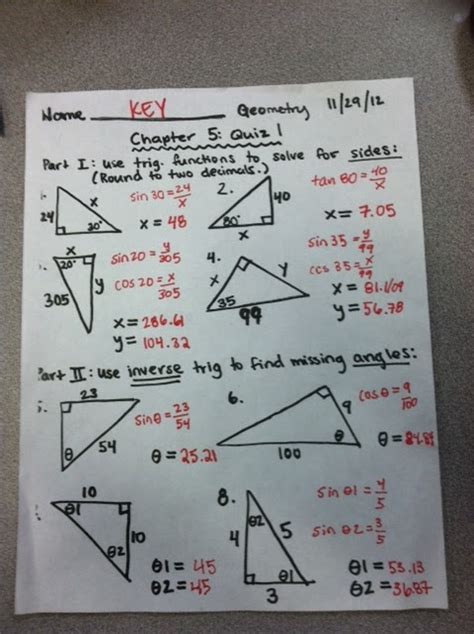 Name KEY Geometry 11/29/12
Chapter 5: Quiz 1
Part I: use trig. functions to solve for sides:
(Round to two decimals.)
24 x 30°
sin 30 = 24/x
x = 48
2. 40 80° x
tan 80 = 40/x
x = 7.05
x 20° 305 y
sin 20 = y/305
cos 20 = x/305
x = 286.61
y = 104.32
4. x y 35 99
sin 35 = y/99
cos 35 = x/99
x = 81.109
y = 56.78
Part II: use inverse trig to find missing angles:
23 54 θ
sin θ = 23/54
θ = 25.21
6. 9 100 θ
cos θ = 9/100
θ = 84.84
10 θ1 10 θ2
θ1 = 45
θ2 = 45
8. θ2 4 5 θ1 3
sin θ1 = 4/5
sin θ2 = 3/5
θ1 = 53.13
θ2 = 36.87